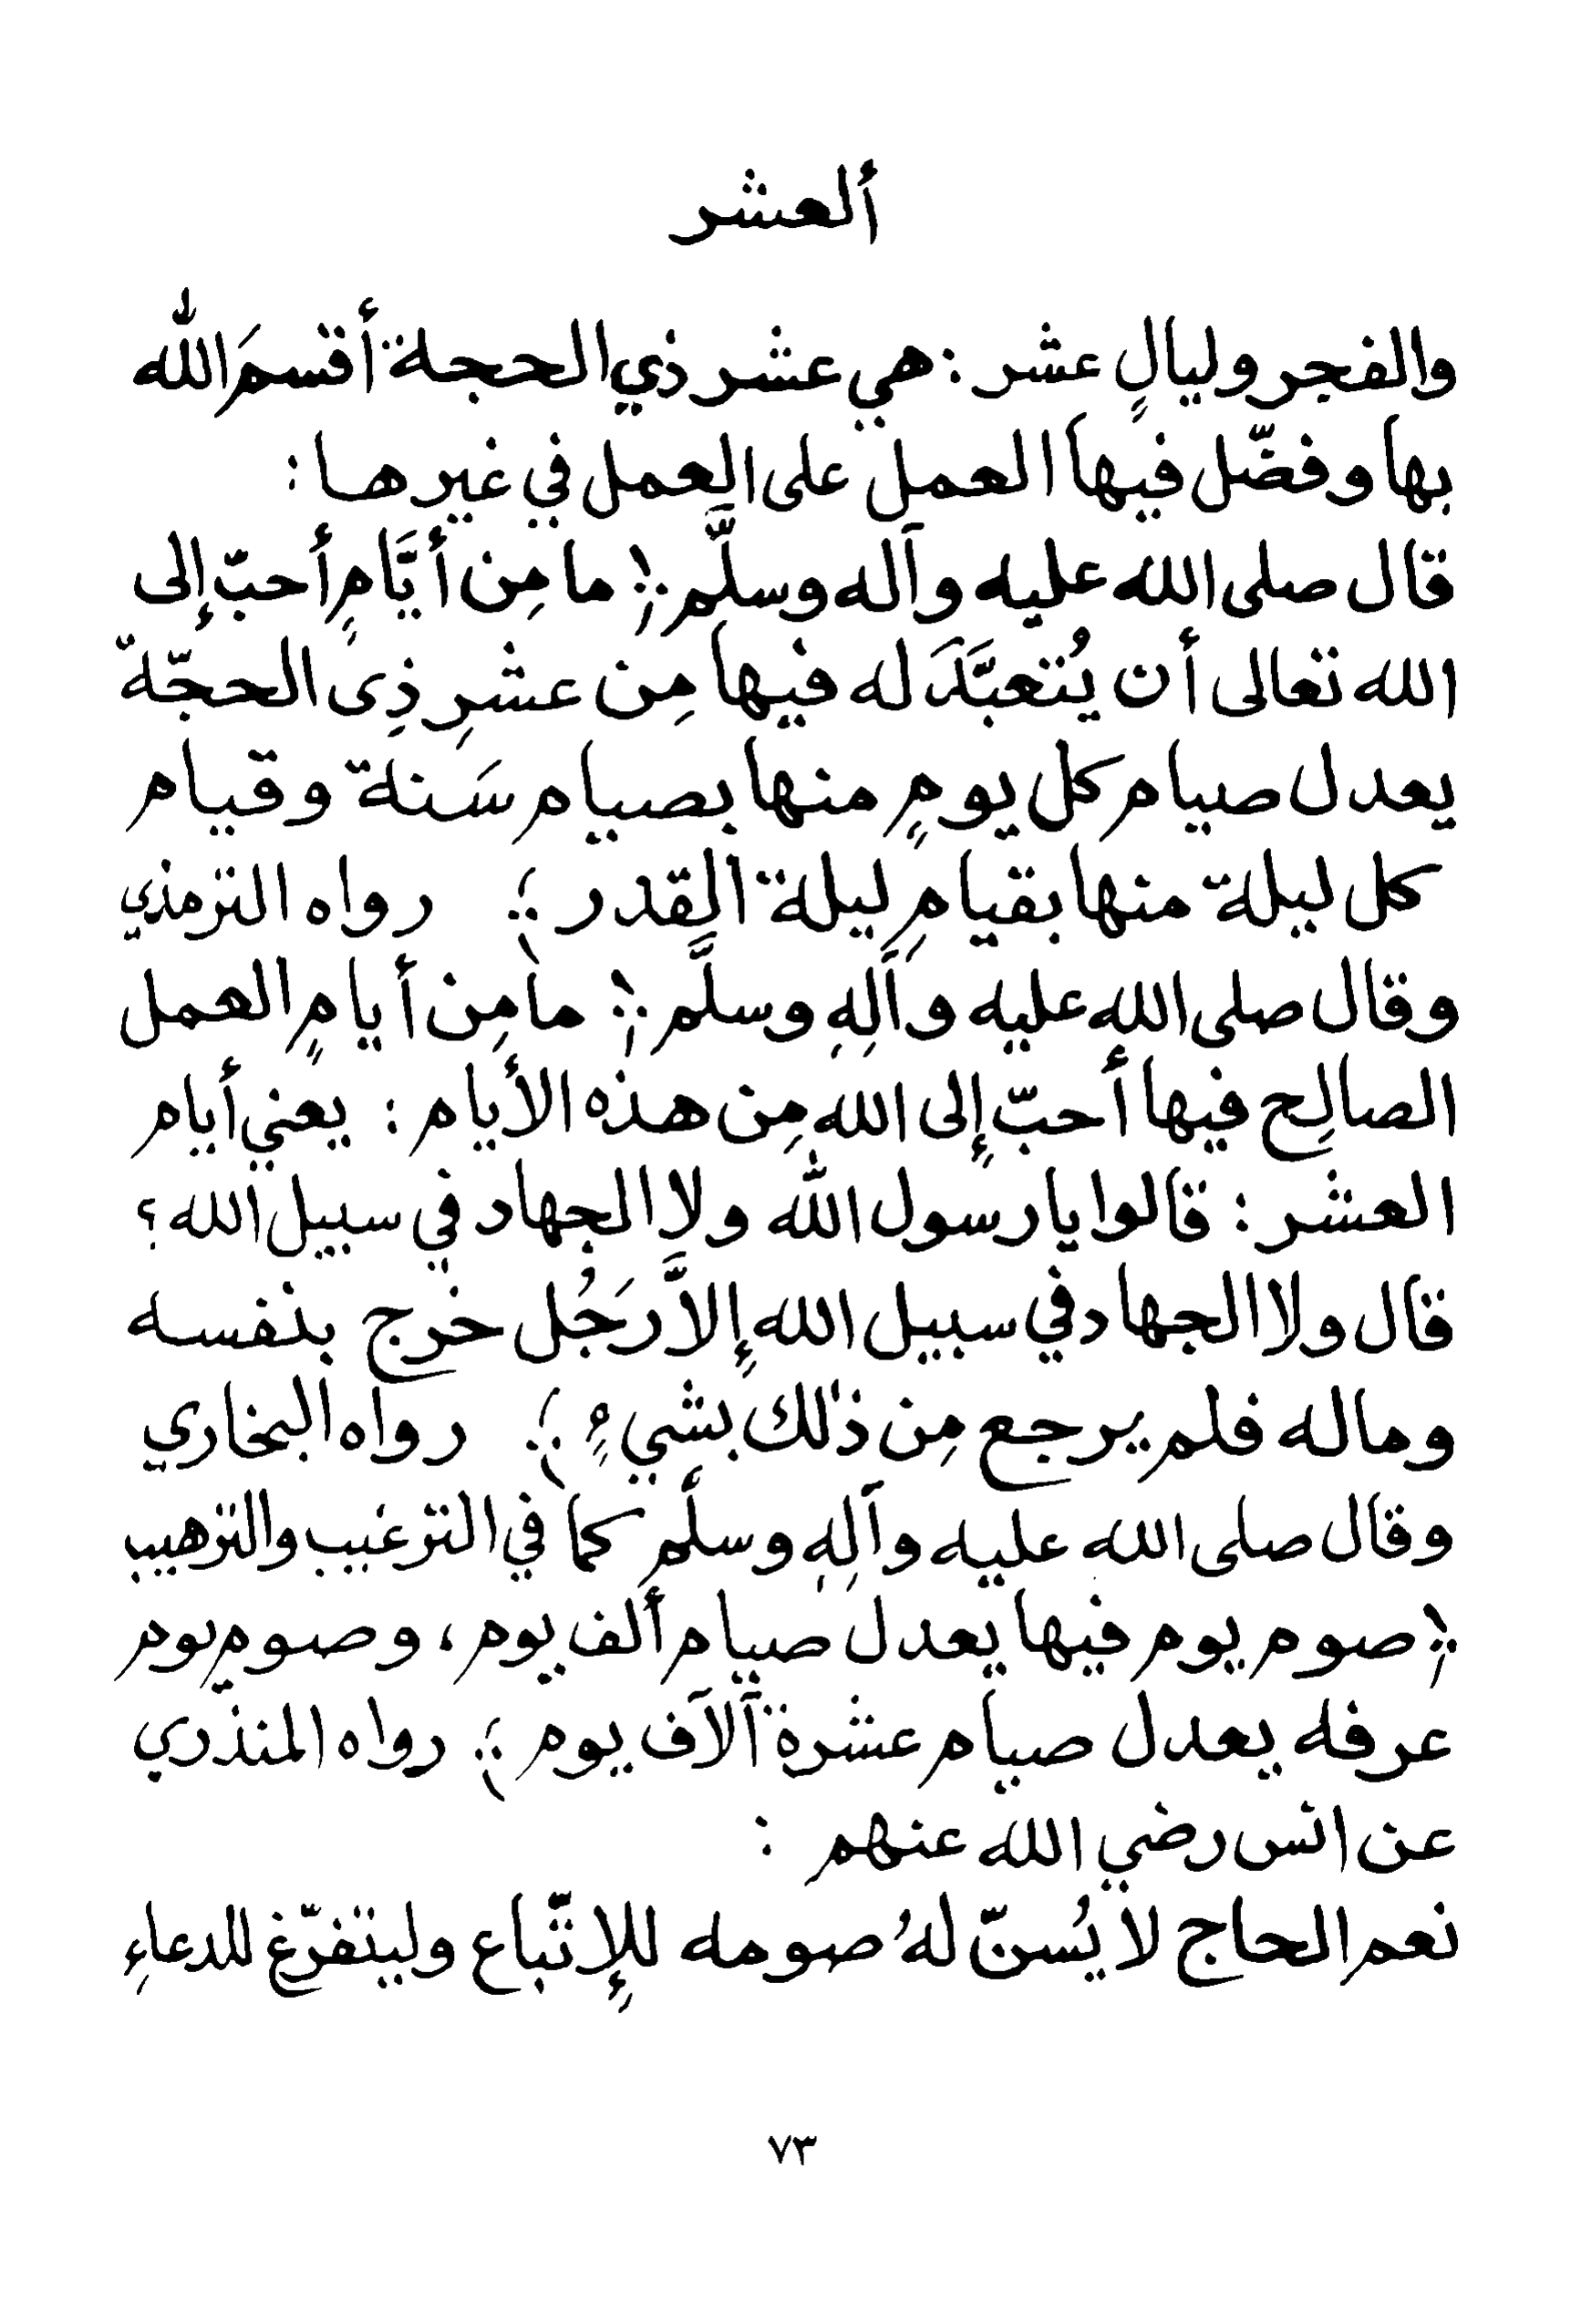 ألعشر
والفجر وليالٍ عشر : هي عشر ذي الحجة أقسمَ الله
بها وفضّل فيها العمل على العمل في غيرها :
قال صلى الله عليه وآله وسلَّم ﴿ ما مِن أيَّامٍ أحبّ إلى
الله تعالى أن يُتعبَّدَ له فيها مِن عشرِ ذِى الحجّة
يعدل صيام كل يومٍ منها بصيام سَنة وقيام
كل ليلة منها بقيامِ ليلة القدر ﴾ رواه الترمذي
وقال صلى الله عليه وآلِهِ وسلَّم ﴿ ما مِن أيامٍ العمل
الصالِح فيها أحبّ إِلى الله مِن هذه الأيام : يعني أيام
العشر : قالوا يا رسول الله ولا الجهاد في سبيل الله ؟
قال ولا الجهاد في سبيل الله إِلاَّ رَجُل خرج بنفسه
وماله فلم يرجع مِن ذلك بشيءٍ ﴾ رواه البخاري
وقال صلى الله عليه وآلِهِ وسلَّم كما في الترغيب والترهيب
﴿ صوم يوم فيها يعدل صيام ألف يوم ، وصوم يوم
عرفه يعدل صيام عشرة آلآف يوم ﴾ رواه المنذري
عن انس رضي الله عنهم :
نعم الحاج لا يُسنّ لهُ صومه للإِتّباع وليتفرّغ للدعاءِ
٧٣